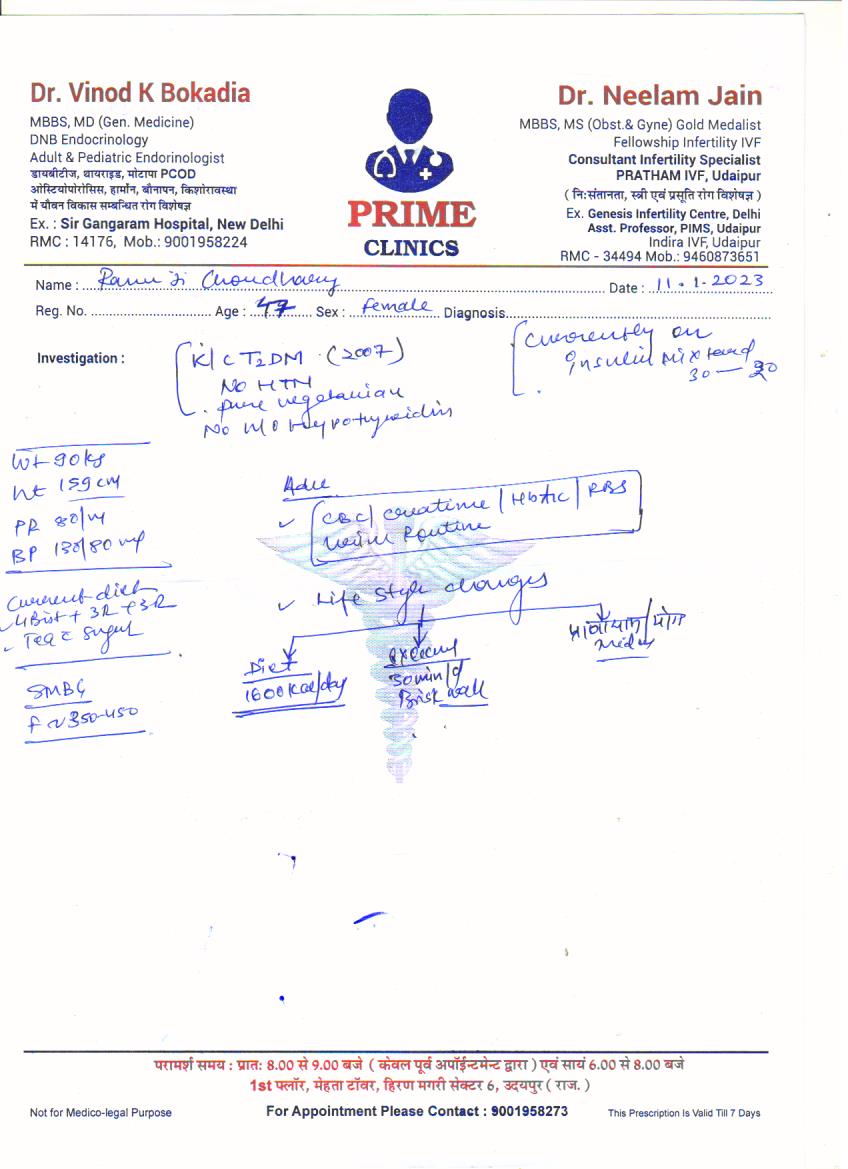 Dr. Vinod K Bokadia
MBBS, MD (Gen. Medicine)
DNB Endocrinology
Adult & Pediatric Endorinologist
डायबीटीज, थायराइड, मोटापा PCOD
ओस्टियोपोरोसिस, हार्मोन, बौनापन, किशोरावस्था
में यौवन विकास सम्बन्धित रोग विशेषज्ञ
Ex. : Sir Gangaram Hospital, New Delhi
RMC : 14176, Mob.: 9001958224
PRIME
CLINICS
Dr. Neelam Jain
MBBS, MS (Obst.& Gyne) Gold Medalist
Fellowship Infertility IVF
Consultant Infertility Specialist
PRATHAM IVF, Udaipur
( नि:संतानता, स्त्री एवं प्रसूति रोग विशेषज्ञ )
Ex. Genesis Infertility Centre, Delhi
Asst. Professor, PIMS, Udaipur
Indira IVF, Udaipur
RMC - 34494 Mob.: 9460873651
Name : Ji Choudhary Date : 11.1.2023
Reg. No. Age : 47 Sex : female Diagnosis
Investigation :
K/c T2DM (2007)
No HTN
pure vegetarian
No H/O Hypothyroidism
Currently on
Insulin Mixtard
30 —
Wt 90 kg
Ht 159 cm
PR 80/m
BP 130/80
Current diet
4 Bist + 3R + 3R
Tea c sugar
SMBG
F ~ 350-450
Adv
✓ CBC/ creatinine / HbA1c / RBS
Urine Routine
✓ Life style changes
Diet
1600 Kcal/day
Exercise
30 min/d
Brisk walk
प्राणायाम/योग
परामर्श समय : प्रात: 8.00 से 9.00 बजे ( केवल पूर्व अपॉईन्टमेन्ट द्वारा ) एवं सायं 6.00 से 8.00 बजे
1st फ्लॉर, मेहता टॉवर, हिरण मगरी सेक्टर 6, उदयपुर ( राज. )
Not for Medico-legal Purpose
For Appointment Please Contact : 9001958273
This Prescription Is Valid Till 7 Days